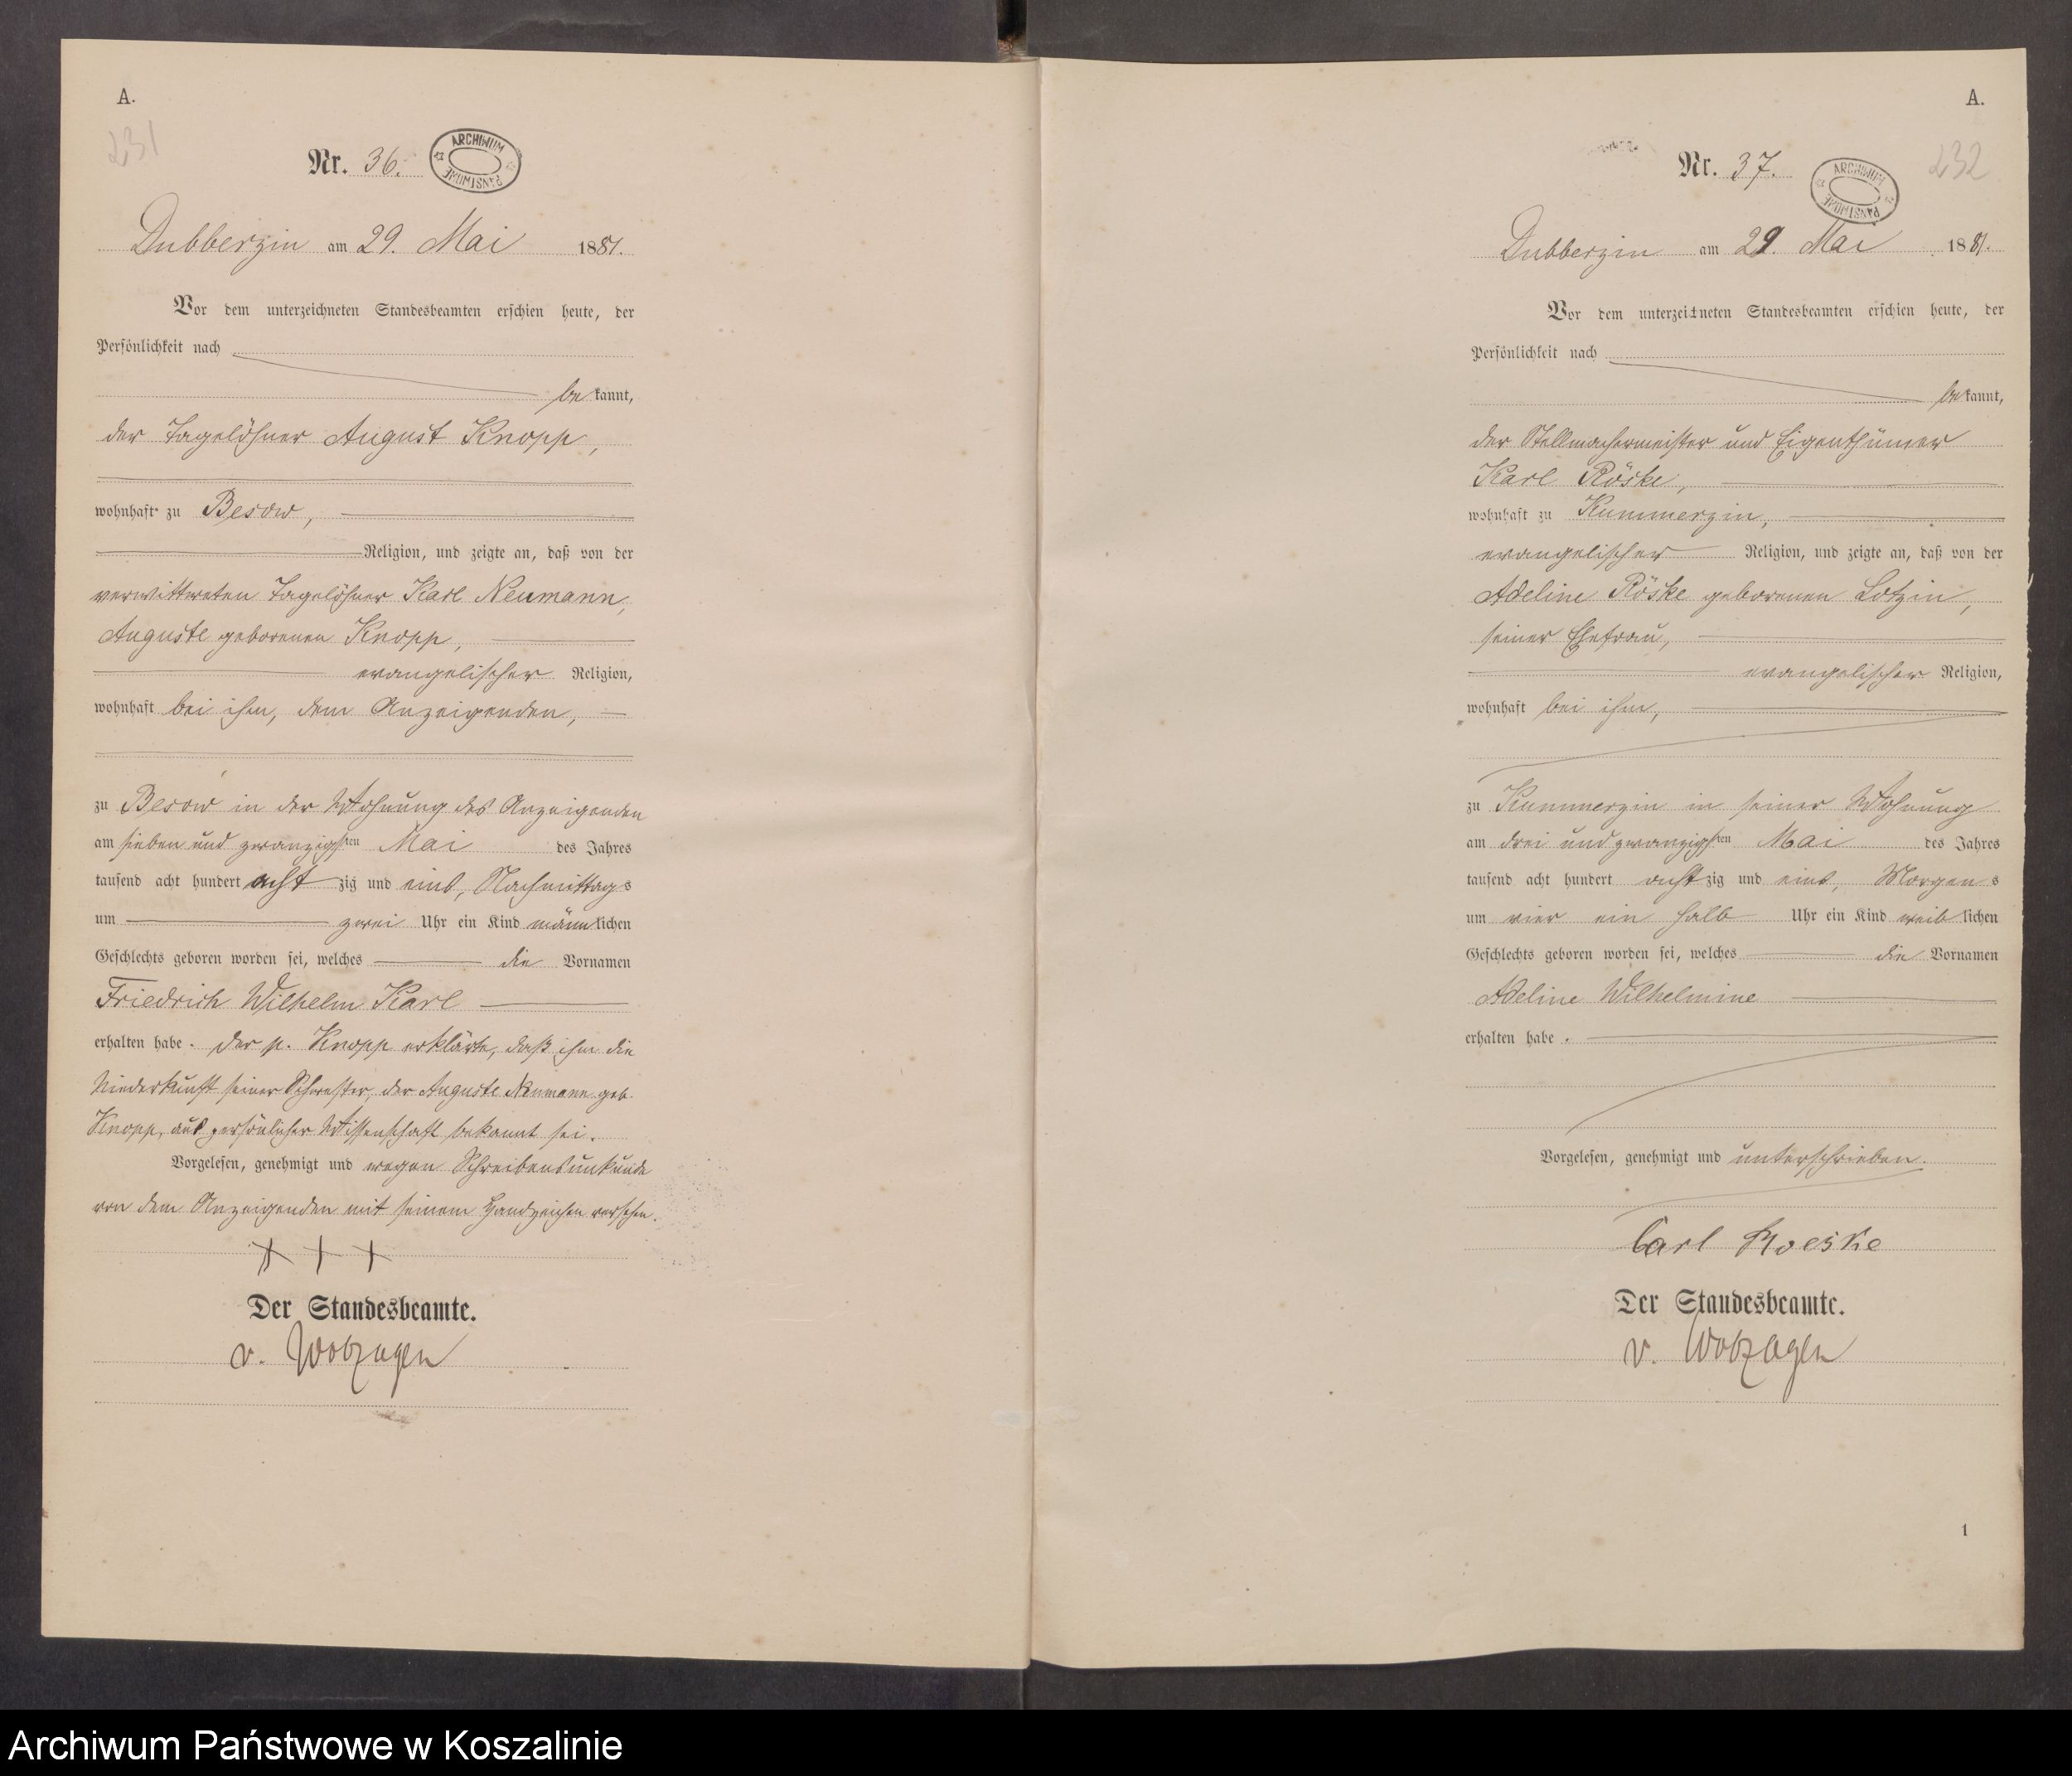 A.
231
Nr. 36.
ARCHIWUM PAŃSTWOWE
Dubberzin am 29. Mai 1881.
Vor dem unterzeichneten Standesbeamten erschien heute, der
Persönlichkeit nach
bekannt,
der Tagelöhner August Knopp,
wohnhaft zu Besow,
Religion, und zeigte an, daß von der
verwittweten Tagelöhner Karl Neumann,
Auguste geborenen Knopp,
evangelischer Religion,
wohnhaft bei ihm, dem Anzeigenden,
zu Besow in der Wohnung des Anzeigenden
am sieben und zwanzigsten Mai des Jahres
tausend acht hundert achtzig und eins, Nachmittags
um zwei Uhr ein Kind männlichen
Geschlechts geboren worden sei, welches die Vornamen
Friedrich Wilhelm Karl
erhalten habe. Der p. Knopp erklärte, daß ihm die
Niederkunft seiner Schwester, der Auguste Neumann geb.
Knopp, aus persönlicher Wissenschaft bekannt sei.
Vorgelesen, genehmigt und wegen Schreibensunkunde
von dem Anzeigenden mit seinem Handzeichen versehen.
+ + +
Der Standesbeamte.
v. Wobzagen
A.
232
Nr. 37.
ARCHIWUM PAŃSTWOWE
Dubberzin am 29. Mai 1881.
Vor dem unterzeichneten Standesbeamten erschien heute, der
Persönlichkeit nach
bekannt,
der Stellmachermeister und Eigenthümer
Karl Röske,
wohnhaft zu Kummerzin,
evangelischer Religion, und zeigte an, daß von der
Adeline Röske geborenen Lotzin,
seiner Ehefrau,
evangelischer Religion,
wohnhaft bei ihm,
zu Kummerzin in seiner Wohnung
am drei und zwanzigsten Mai des Jahres
tausend acht hundert achtzig und eins, Morgens
um vier ein halb Uhr ein Kind weiblichen
Geschlechts geboren worden sei, welches die Vornamen
Adeline Wilhelmine
erhalten habe.
Vorgelesen, genehmigt und unterschrieben.
Carl Roeske
Der Standesbeamte.
v. Wobzagen
1
Archiwum Państwowe w Koszalinie